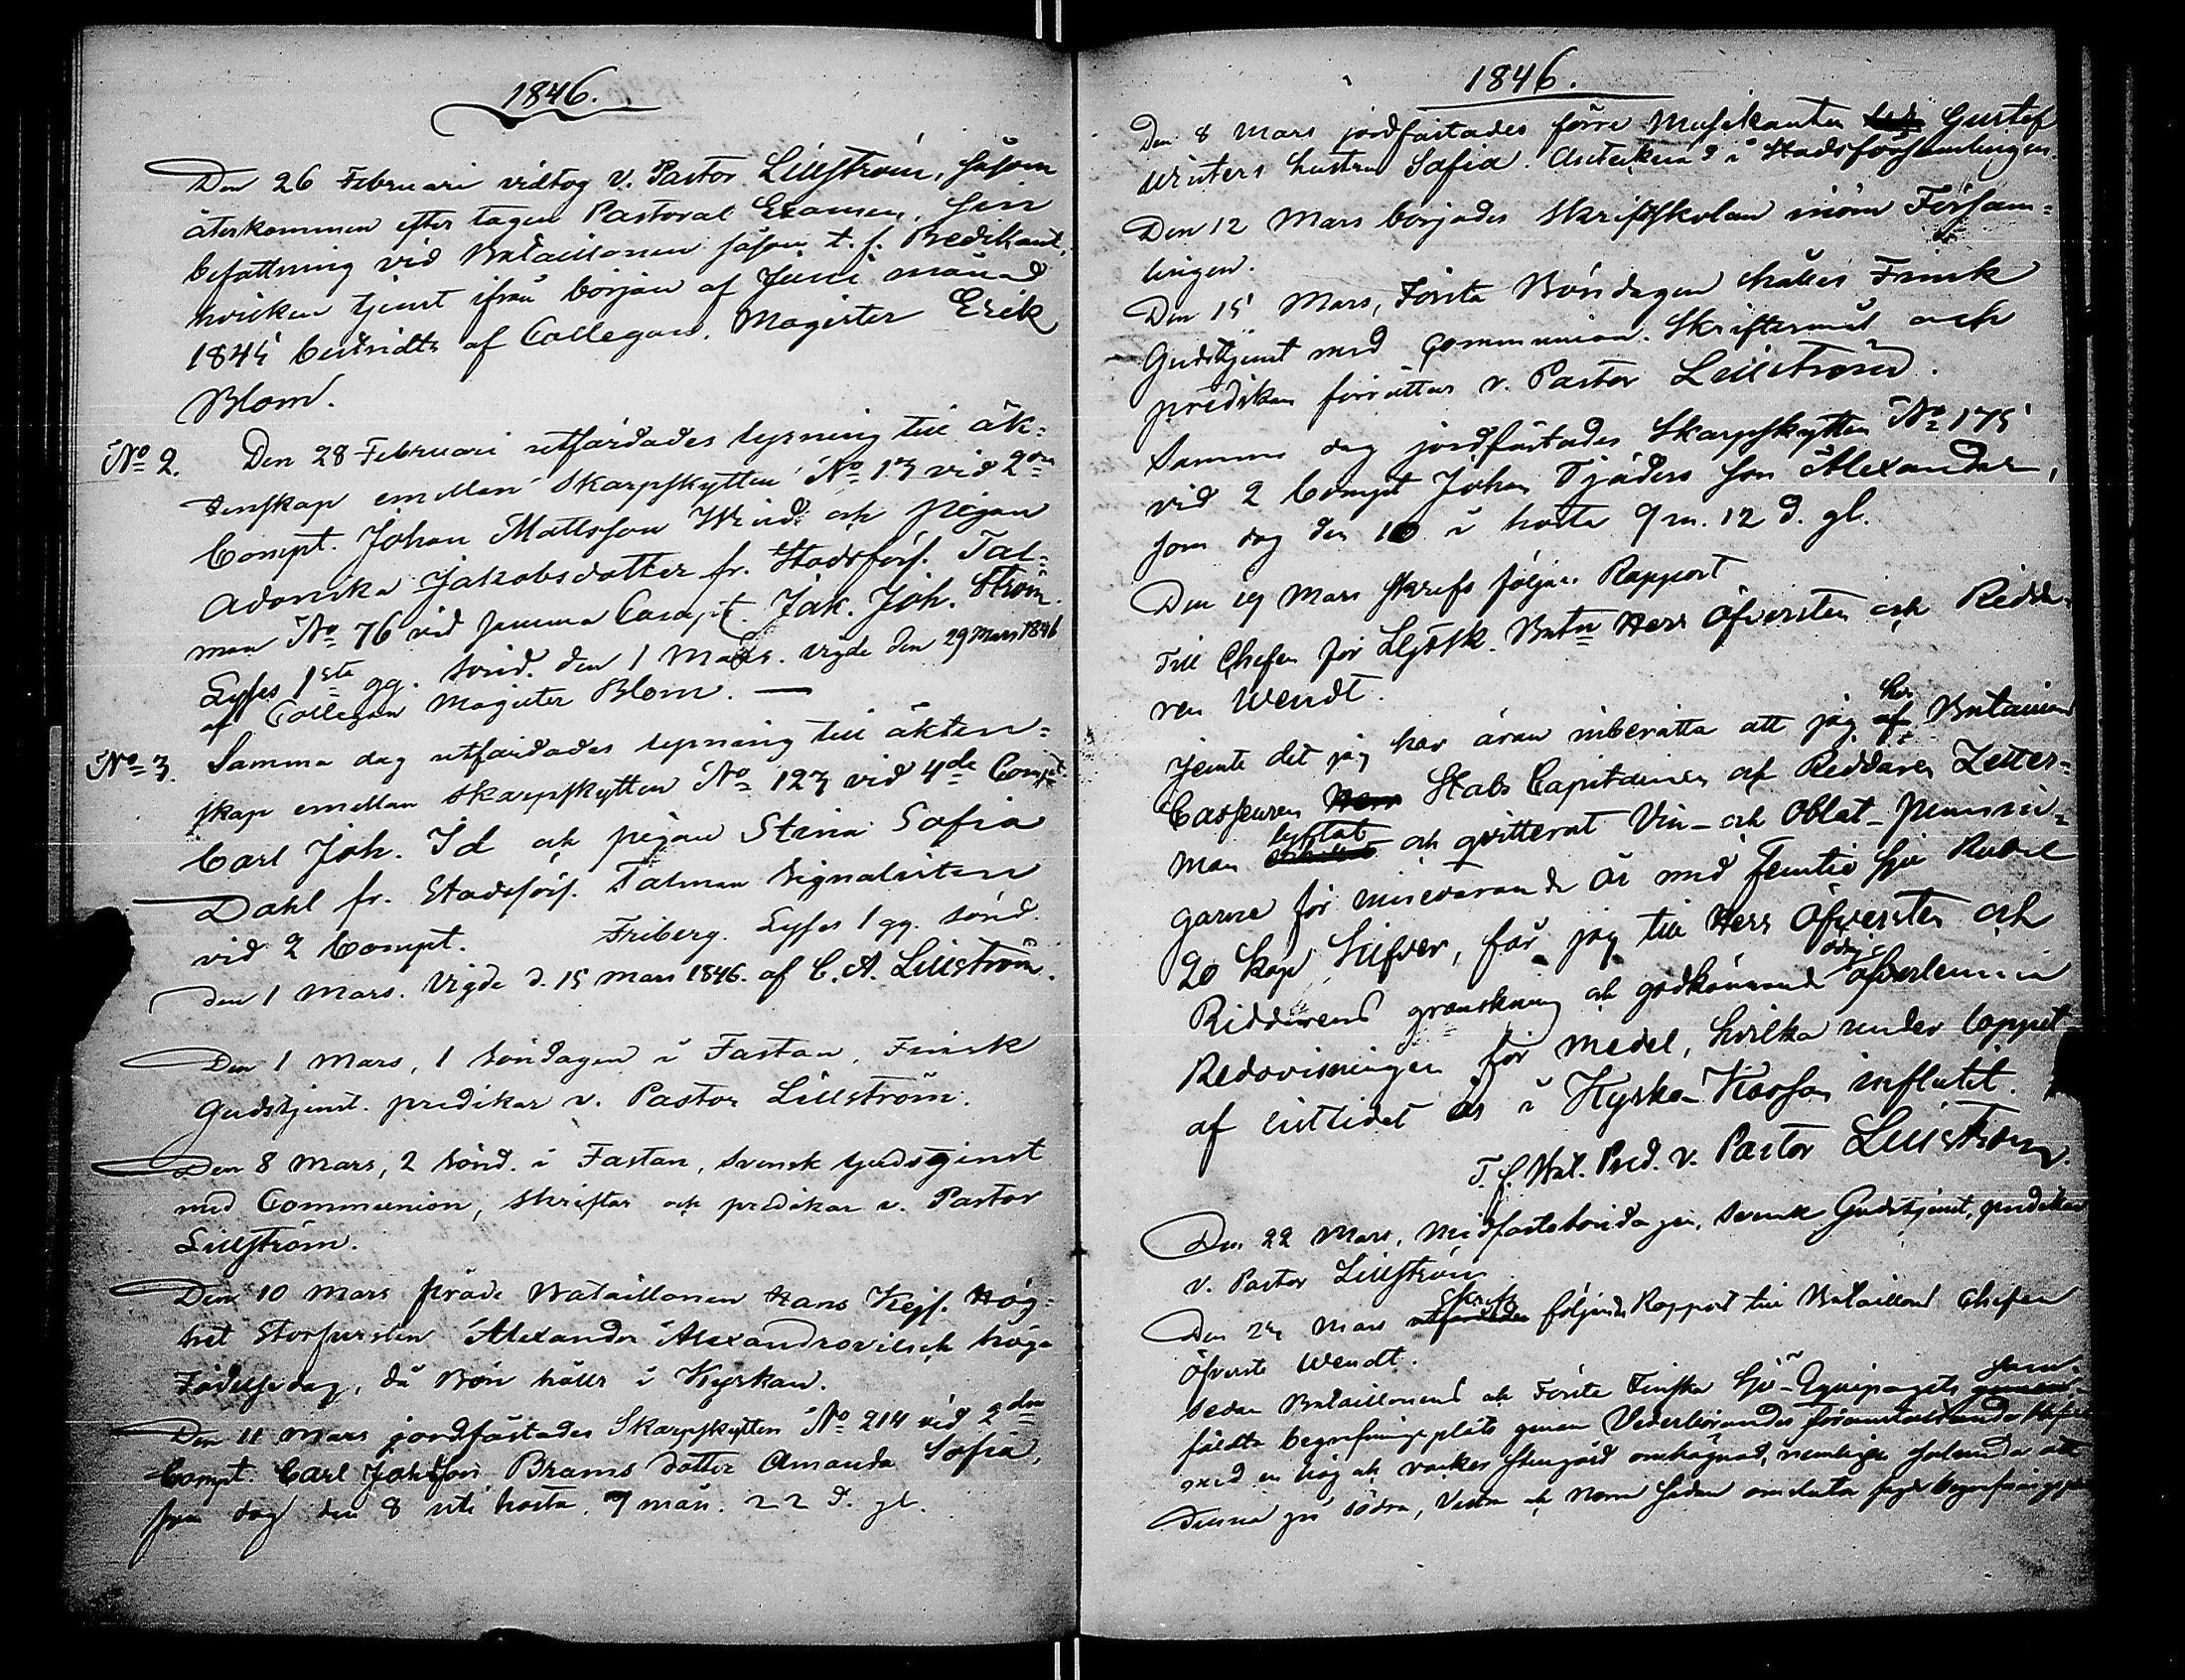 1846.
Den 26 Februari vidtog v. Pastor Lillström, såsom
återkommen efter tagen Pastoral Examen, sin
befattning vid Bataillonen såsom t. f. Predikant,
hvilken tjenst ifrån början af Juni månad
1845 bestridts af Collegan, Magister Erik
Blom.
No 2. Den 28 Februari utfärdades lysning till äk=
tenskap emellan Skarpskytten No 13 vid 2dra
Compt. Johan Mattsson Wind och pigan
Adorika Jakobsdotter fr. Stadsförs. Tal=
man No 76 vid samma Compt. Jak. Joh. Ström.
Lyses 1sta gg. sönd. den 1 Mars. Vigde den 29 Mars 1846
af Collegan Magister Blom. —
No 3. Samma dag utfärdades lysning till äkten=
skap emellan skarpskytten No 123 vid 4de Compt.
Carl Joh. Id och pigan Stina Sofia
Dahl fr. Stadsförs. Talman Signalisten
vid 2 Compt. Friberg. Lyses 1 gg. sönd.
den 1 Mars. Vigde d. 15 Mars 1846. af C. A. Lillström.
Den 1 Mars, 1 Söndagen i Fastan, Finsk
Gudstjenst. predikar v. Pastor Lillström.
Den 8 Mars, 2 Sönd. i Fastan, Svensk Gudstjenst
med Communion, skriftar och predikar v. Pastor
Lillström.
Den 10 Mars firade Bataillonen Hans Kejs. Hög=
het Storfursten Alexander Alexandrovitsch höga
Födelsedag, då Bön hålls i Kyrkan.
Den 11 Mars jordfästades Skarpskytten No 214 vid 2dra
Compt. Carl Johansson Brams dotter Amanda Sofia,
som dog den 8 uti hosta, 7 mån. 22 d. gl.
1846.
Den 8 Mars jordfästades förre Musikanten Gustaf
Winters hustru Sofia. Antecknad i Stadsförsamlingen.
Den 12 Mars börjades Skriftskolan inom Försam=
lingen.
Den 15 Mars, Första Böndagen hålles Finsk
Gudstjenst med Communion. Skriftermål och
predikan förrättar v. Pastor Lillström.
Samma dag jordfästades Skarpskytten No 175
vid 2 Compt Johan Tjäders son Alexander,
som dog den 10 i hosta 9 m. 12 d. gl.
Den 19 Mars skrefs följande Rapport
Till Chefen för Skarpsk. Batn Herr Öfversten och Ridda=
ren Wendt.
Jemte det jag har äran inberätta att jag har af Bataillons
Casseuren Herr Stabs Capitainen och Riddaren Zetter=
man lyftat och qvitterat Vin- och Oblat-penning=
arne för innevarande år med Femtio sju Rubel
20 Kop Silfver, får jag till Herr Öfversten och
Riddarens granskning och godkännande öfverlemna
Redovisningen för medel, hvilka under loppet
af sistlidet år i Kyrko-Kassan influtit.
T. f. Bat. Pred. v. Pastor Lillström.
Den 22 Mars, Midfastosöndagen, Svensk Gudstjenst, predikar
v. Pastor Lillström
Den 24 Mars skrefs utfärdades följande Rapport till Bataillons Chefen
Öfverste Wendt.
Sedan Bataillonens och Första Finska Sjö-Equipagets sam=
fäldta begrafningsplats genom Vederbörandes föranstaltande blifvit
med en hög och vacker stengård omhägnad, nemligen
denna på Södra, Vestra och Norra sidan omsluter begrafningspl